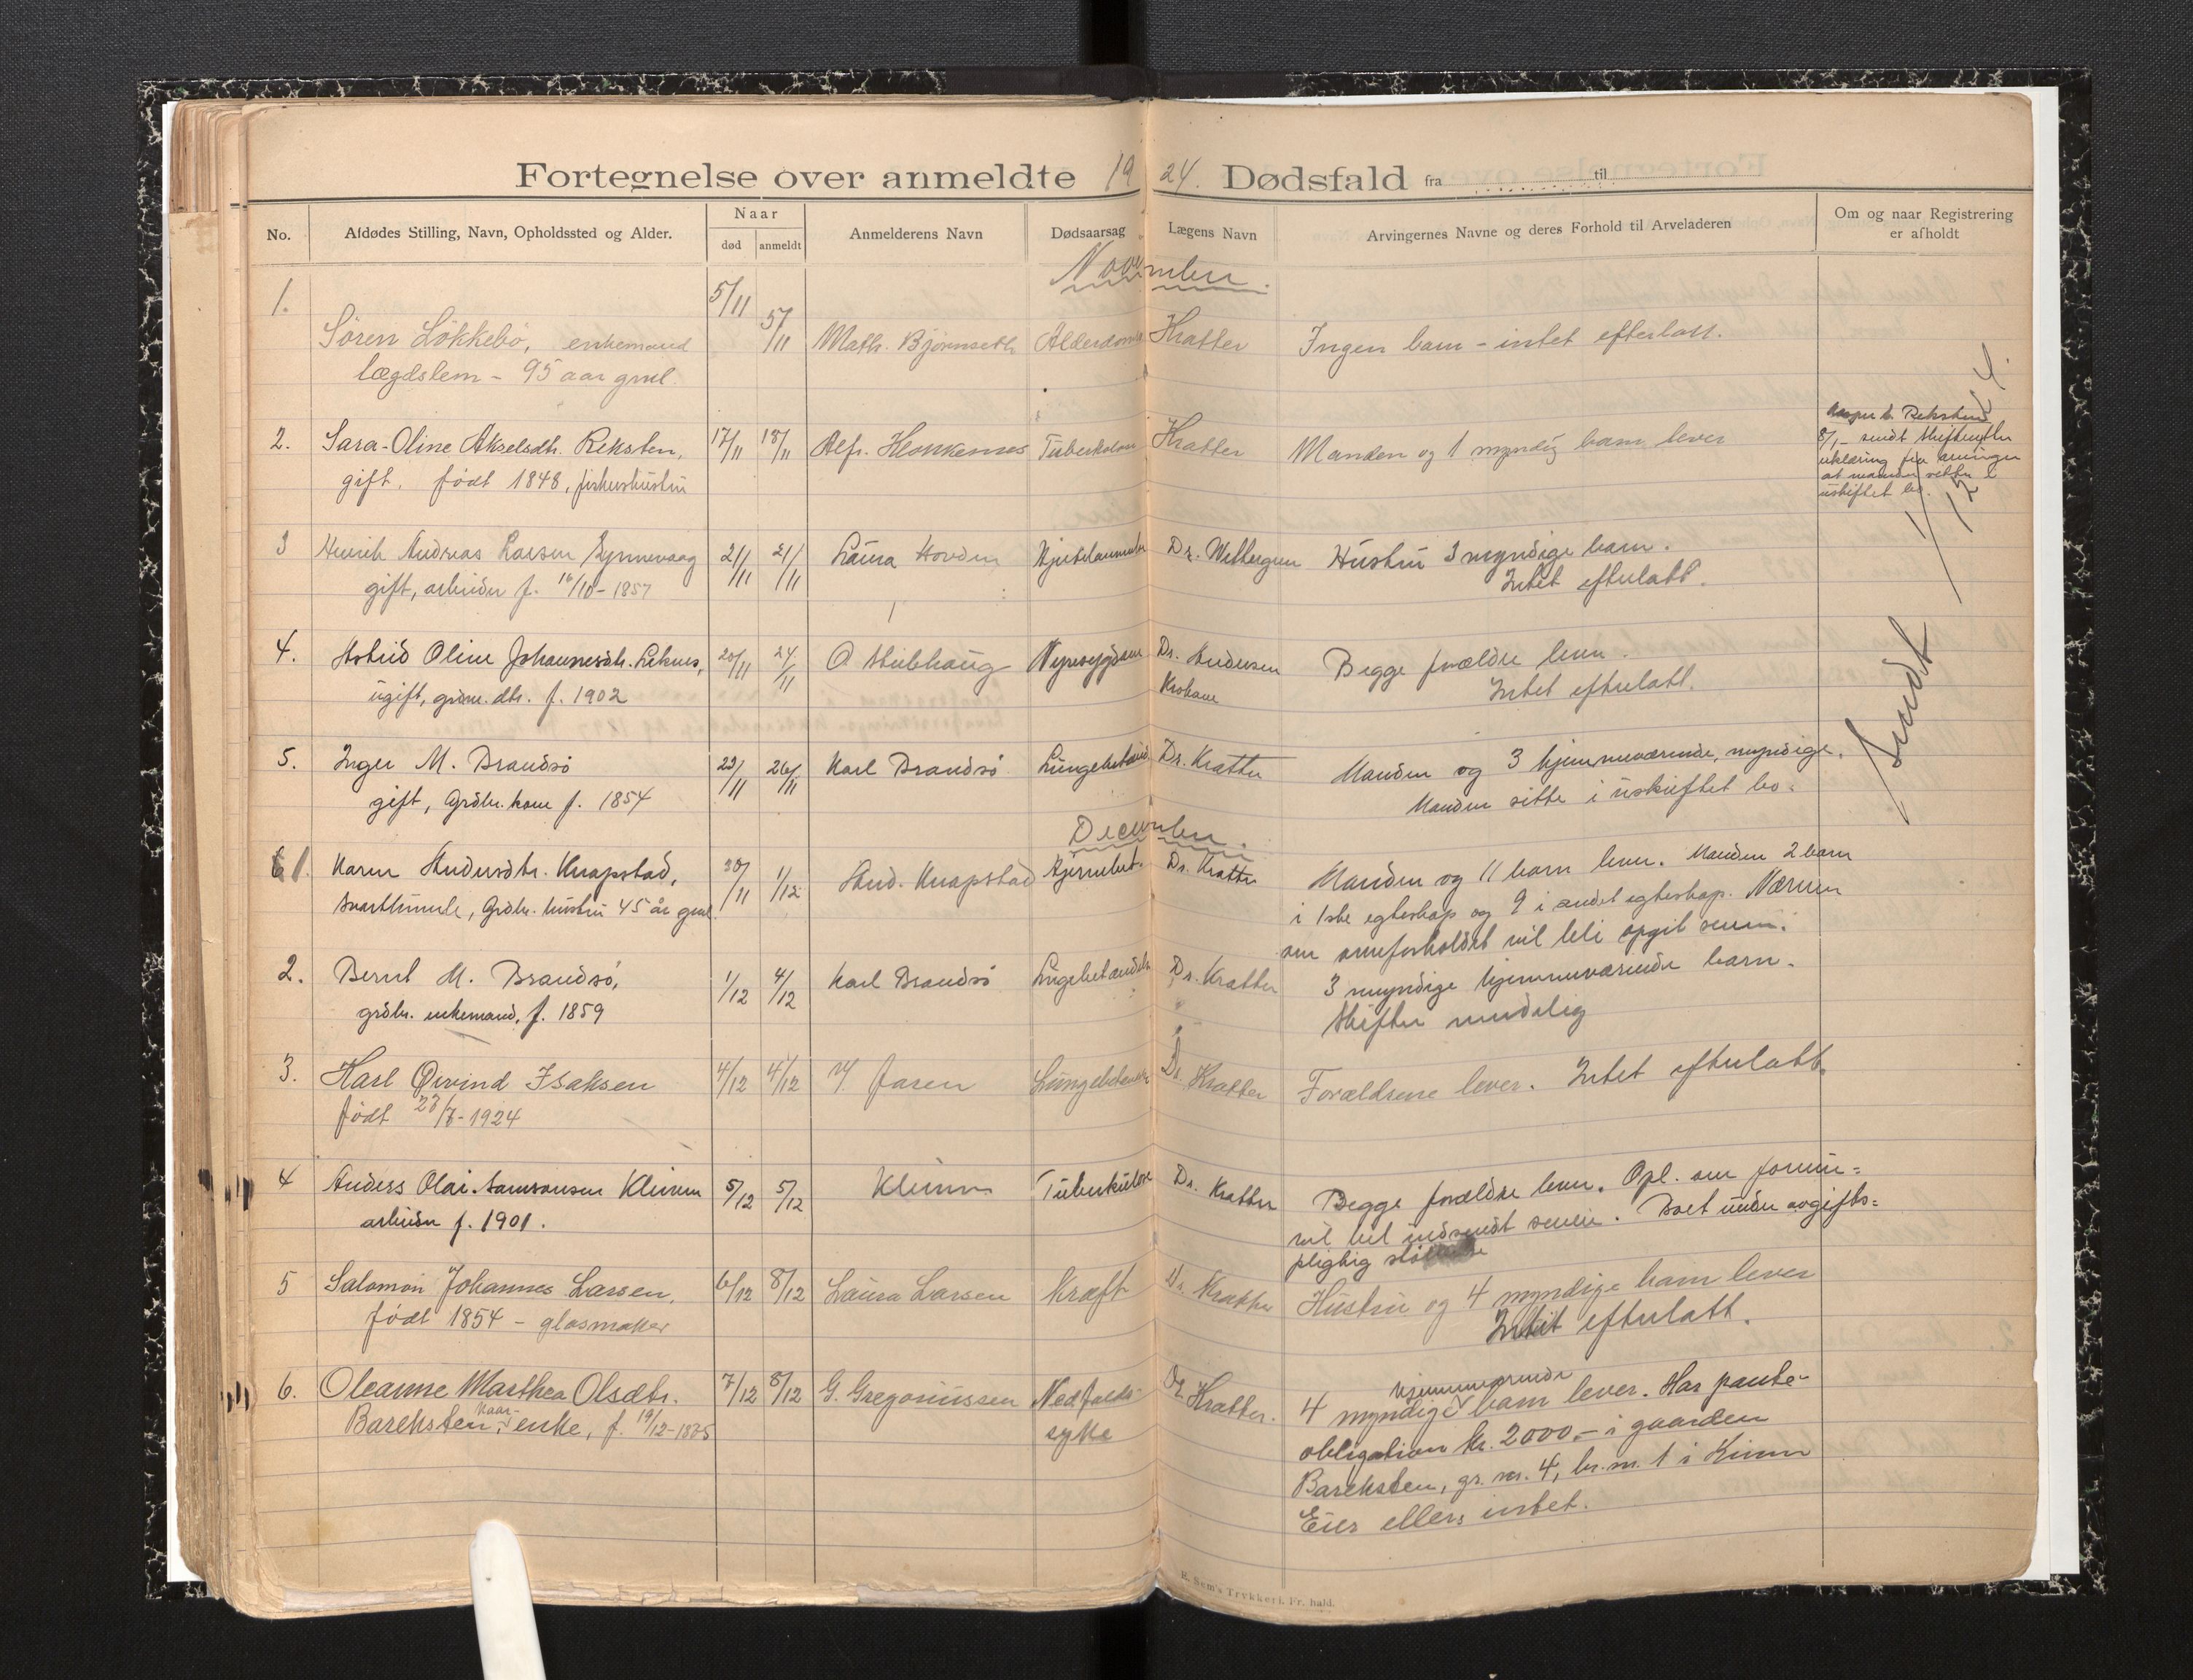 Fortegnelse over anmeldte 1924. Dødsfald fra til
No. Afdødes Stilling, Navn, Opholdssted og Alder. Naar død anmeldt Anmelderens Navn Dødsaarsag Lægens Navn Arvingernes Navne og deres Forhold til Arveladeren Om og naar Registrering er afholdt
November.
1. 5/11
Sören Lökkebö, enkemand 5/11 Math. Björnseth Alderdom Kratter Ingen barn - intet efterlatt.
lægdslem - 95 aar gml.
2. Sara-Oline Akselsdtr. Reksten, 17/11 18/11 Alfr. Klonkenes Tuberkulose Kratter Manden og 1 myndig barn lever
gift. født 1848, fiskerhustru
Reksten
8/1 - sendt skifteretten
erklæring fra arvinger
at manden sitter i
uskiftet bo.
3 Henrik Andreas Larsen Synnevaag 21/11 21/11 Laura Hovden Hjertelammelse Dr. Wettergren Hustru 3 myndige barn.
gift, arbeider f. 16/10 - 1857 Intet efterlatt.
4. Astrid Oline Johannesdtr. Leknes, 20/11 24/11 O. Stubhaug Nyresygdom Dr. Andersen
ugift, grdbr. dtr. f. 1902 Krohane Begge forældre lever.
Intet efterlatt.
5. Inger M. Brandsö 23/11 26/11 Karl Brandsö Lungebetænd Dr. Kratter Manden og 3 hjemmeværende, myndige.
gift, Grdbr. kone f. 1854 Manden sitte i uskiftet bo.
Sendt 1/12 24.
December.
1. Karen Andersdtr. Knapstad, 30/11 1/12 And. Knapstad Hjernebet. Dr. Kratter Manden og 11 barn lever. Manden 2 barn
Svarthumle, Grdbr. hustru 45 år gml. i 1ste egteskap og 9 i andet egteskap. Nærmere
om arveforholdet vil bli opgit senere.
2. Bernt M. Brandsö, 1/12 4/12 Karl Brandsö Lungebetændelse Dr. Kratter 3 myndige hjemmeværende barn.
grdbr. enkemand, f. 1859 Skifter mindelig
3. Karl Øivind Isaksen 4/12 4/12 Jaren Lungebetændelse Dr. Kratter Forældrene lever. Intet efterlatt.
født 23/7 - 1924
4 Anders Olai Samsonsen Kleiven 5/12 5/12 Kleiven Tuberkulose Dr. Kratter Begge forældre lever. Opl. om formue=
arbeider f. 1901. vil bli indsendt senere. Boet under avgifts=
pligtig størrelse
5 Salomon Johannes Larsen, 6/12 8/12 Laura Larsen Kræft Dr. Kratter Hustru og 4 myndige barn lever
født 1854 - glasmaker Intet efterlatt.
6. Oleanne Marthea Olsdtr. 7/12 8/12 G. Gregoriussen Nedfalds- Dr. Kratter. 4 myndige hjemmeværende barn lever. Har pante-
Bareksten, kaar-enke, f. 19/12-1835 syke obligation kr. 2000,- i gaarden
Bareksten, gr. nr. 4, br. nr. 1 i Kinn
Eier ellers intet.
E. Sem's Trykkeri. Fr. hald.